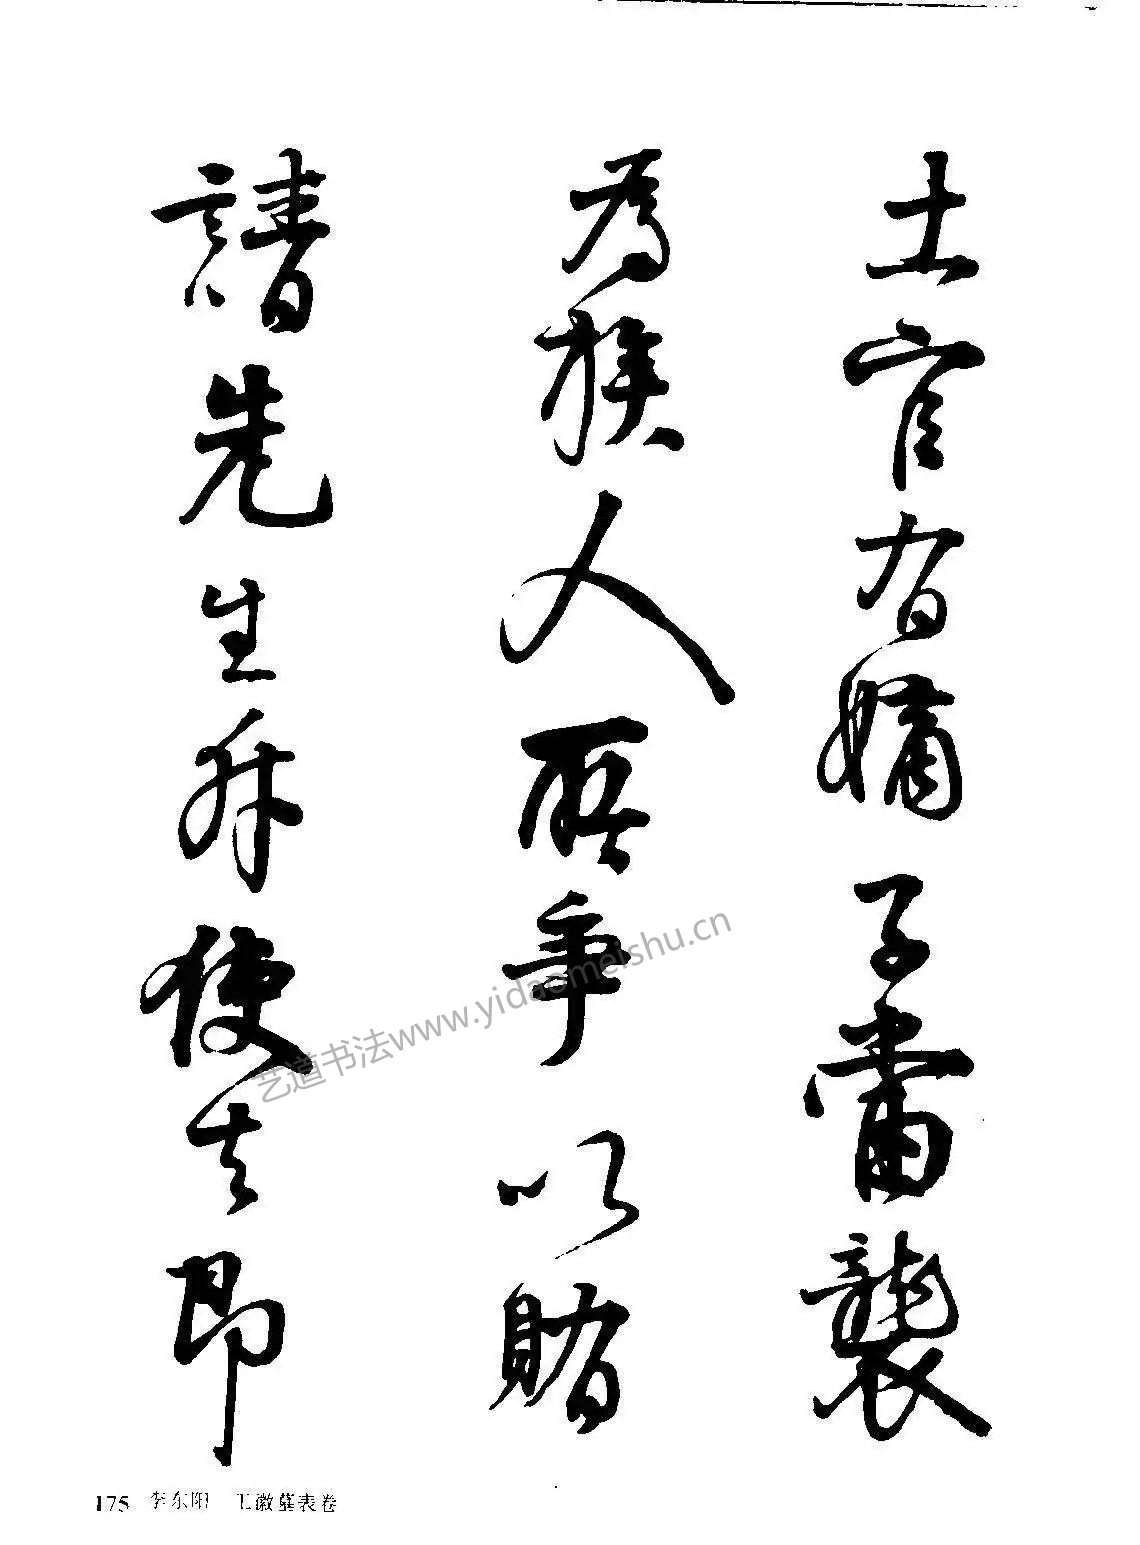 土官有嫡子當襲
為族人所爭以賄
請先生斥使去即
艺道书法www.yidaomeishu.cn
175 李东阳 王徽墓表卷